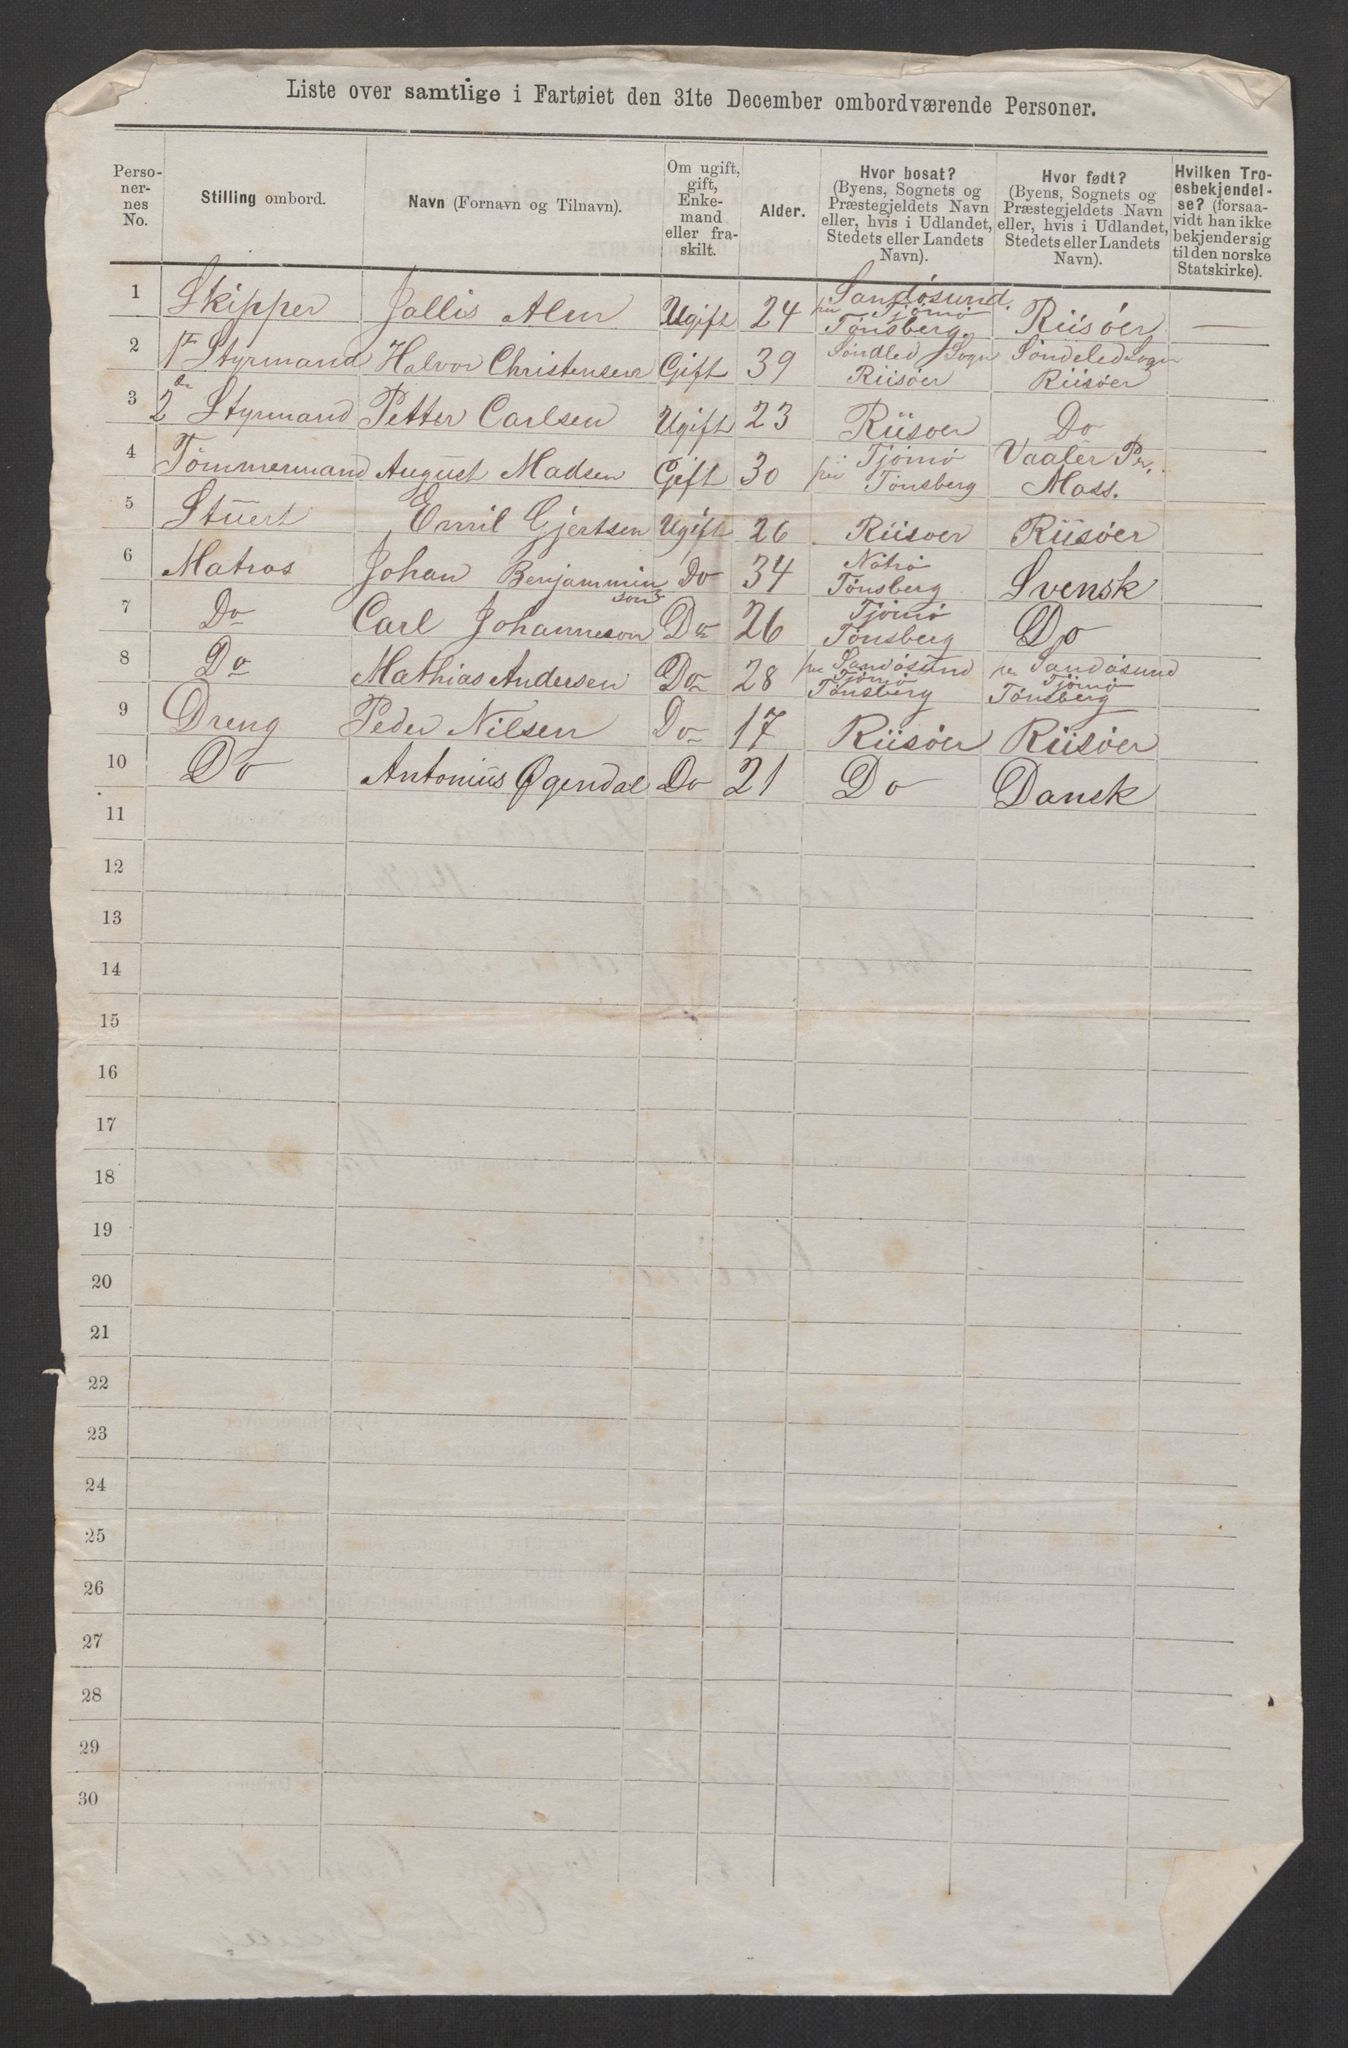 Liste over samtlige i Fartøiet den 31te December ombordværende Personer.
Personernes No. | Stilling ombord. | Navn (Fornavn og Tilnavn). | Om ugift, gift, Enkemand eller fraskilt. | Alder. | Hvor bosat? (Byens, Sognets og Præstegjeldets Navn eller, hvis i Udlandet, Stedets eller Landets Navn). | Hvor født? (Byens, Sognets og Præstegjeldets Navn eller, hvis i Udlandet, Stedets eller Landets Navn). | Hvilken Troesbekjendelse? (forsaavidt han ikke bekjender sig til den norske Statskirke).
1 | Skipper | Jallis Alen | Ugift | 24 | Sandøsund pr Tjømø Tønsberg. | Riisøer | —
2 | 1te Styrmand | Halvor Christensen | Gift | 39 | Søndled Sogn Riisøer | Søndeled Sogn Riisøer
3 | 2den Styrmand | Petter Carlsen | Ugift | 23 | Riisøer | Do
4 | Tømmermand | August Madsen | Gift | 30 | Tjømø pr Tønsberg | Vaaler Pr. Moss.
5 | Stuert | Emil Gjertsen | Ugift | 26 | Riisøer | Riisøer
6 | Matros | Johan Benjamminson | Do | 34 | Nøtrø Tønsberg | Svensk
7 | Do | Carl Johanneson | Do | 26 | Tjømø Tønsberg | Do
8 | Do | Mathias Andersen | Do | 28 | pr Sandøsund Tjømø Tønsberg | pr Sandøsund Tjømø Tønsberg
9 | Dreng | Peder Nilsen | Do | 17 | Riisøer | Riisøer
10 | Do | Antonius Øgendal | Do | 21 | Do | Dansk
11
12
13
14
15
16
17
18
19
20
21
22
23
24
25
26
27
28
29
30